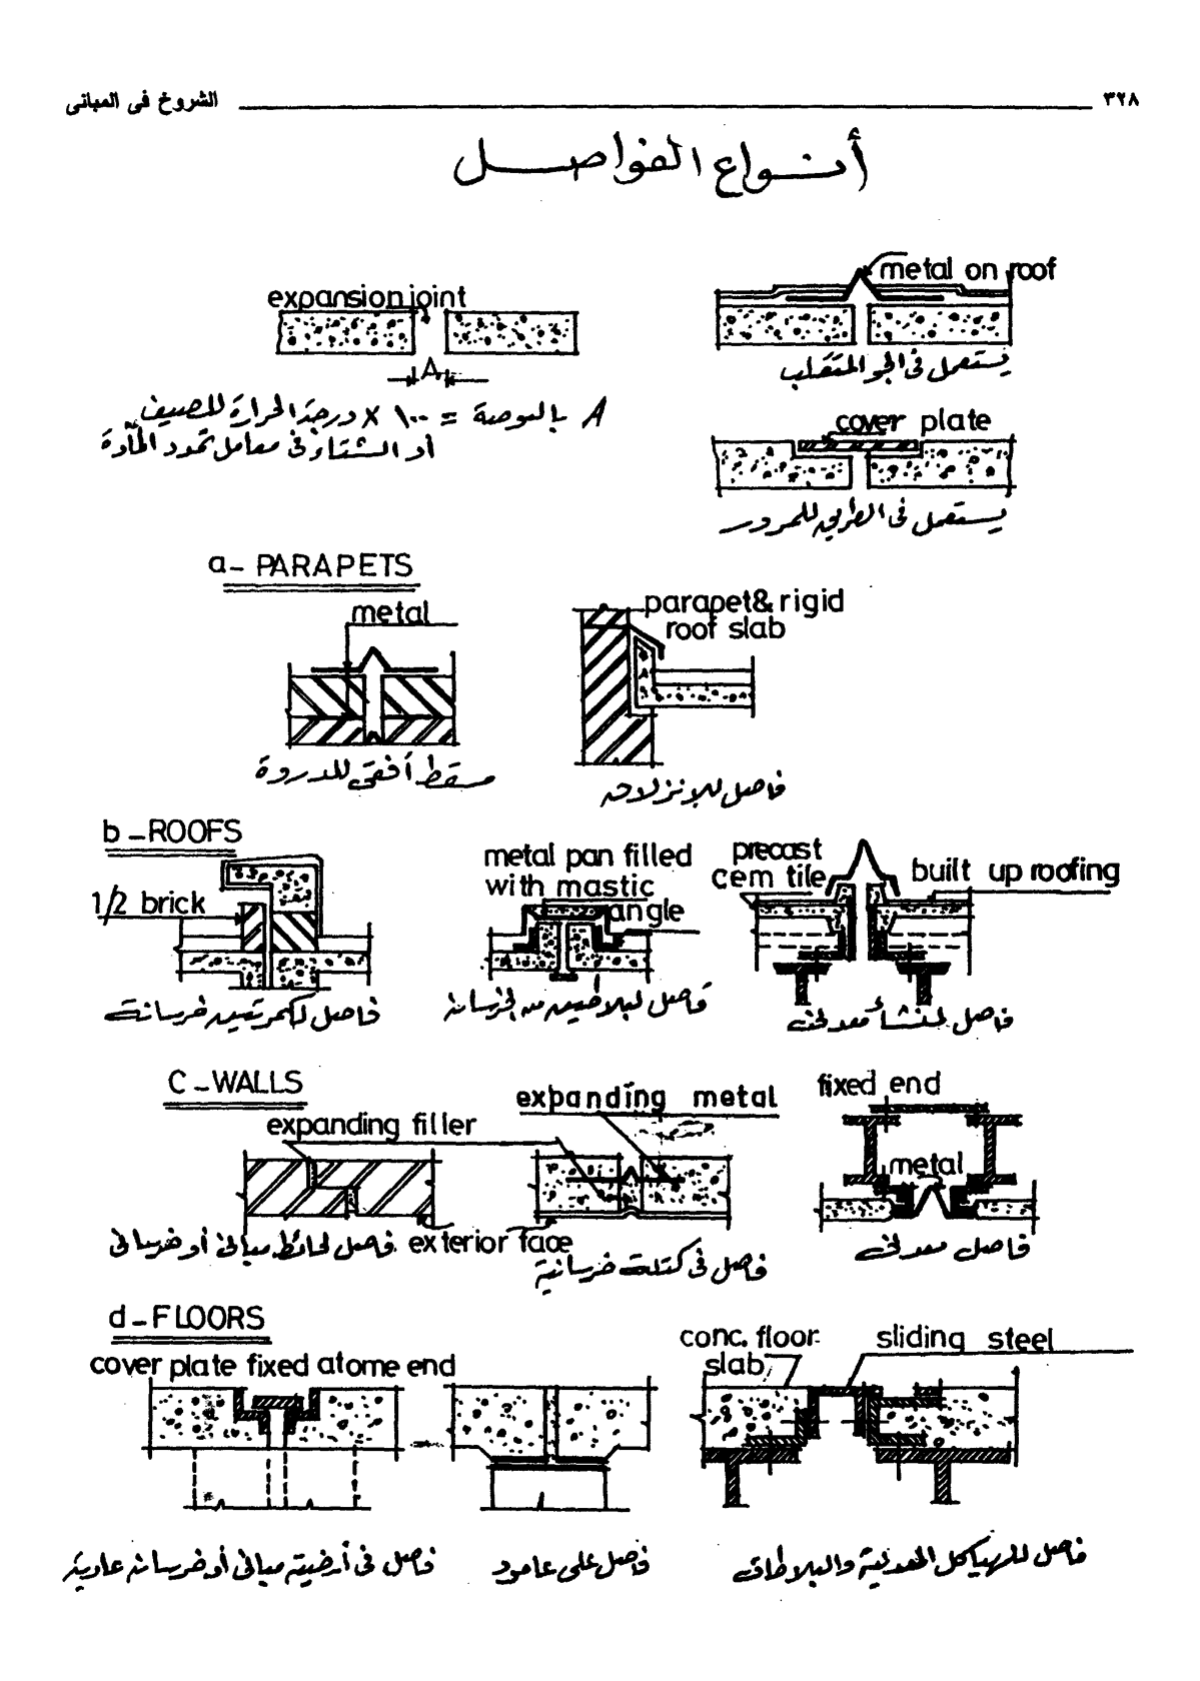 ٣٢٨ الشروخ فى المبانى
أنواع الفواصل
expansion joint
A
A بالبوصة = ١٠٠ × درجة الحرارة للصيف
أو الشتاء فى معامل تمدد المادة
metal on roof
يستعمل فى الجو المتقلب
cover plate
يستعمل فى الطرق للمرور
a- PARAPETS
metal
مسقط أفقى للدروة
parapet & rigid
roof slab
فاصل للإنزلاق
b - ROOFS
1/2 brick
فاصل لكمرتين خرسانة
metal pan filled
with mastic
angle
فاصل لبلاطتين من الخرسانة
precast
cem tile
built up roofing
فاصل لمنشأ معدنى
C - WALLS
expanding filler
exterior face
فاصل لحائط مبانى أو خرسانى
expanding metal
فاصل فى كتلة خرسانية
fixed end
metal
فاصل معدنى
d - FLOORS
cover plate fixed atome end
فاصل فى أرضية مبانى أو خرسانة عادية
فاصل على عامود
conc. floor
slab
sliding steel
فاصل للهياكل المعدنية والبلاطات